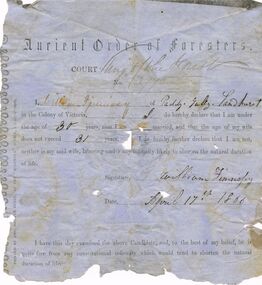 Ancient Order of Foresters.
COURT King of the Forest
No.
I, William of Paddys Gully Sandhurst
in the Colony of Victoria, do hereby declare that I am under
the age of 38 years, and that the age of my wife
does not exceed 31 years. I do hereby declare that I am not,
neither is my said wife, labouring under any malady likely to shorten the natural duration
of life.
Signature, William
Date, April 17th
I have this day examined the above Candidate, and, to the best of my belief, he is
quite free from any constitutional infirmity which would tend to shorten the natural
duration of life.